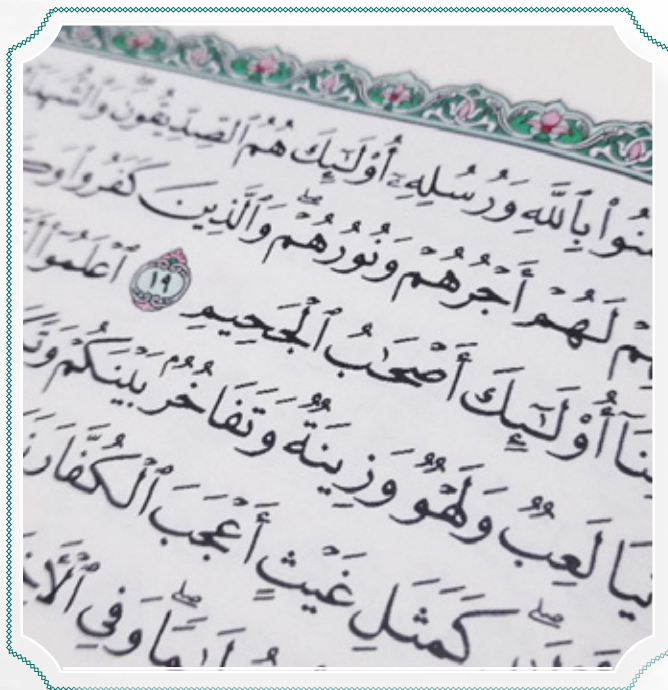 بِٱللَّهِ وَرُسُلِهِۦٓ أُو۟لَٰٓئِكَ هُمُ ٱلصِّدِّيقُونَ
لَهُمْ أَجْرُهُمْ وَنُورُهُمْ ۖ وَٱلَّذِينَ كَفَرُوا۟
أُو۟لَٰٓئِكَ أَصْحَٰبُ ٱلْجَحِيمِ ١٩ ٱعْلَمُوٓا۟
لَعِبٌ وَلَهْوٌ وَزِينَةٌ وَتَفَاخُرٌۢ بَيْنَكُمْ
كَمَثَلِ غَيْثٍ أَعْجَبَ ٱلْكُفَّارَ
وَفِى